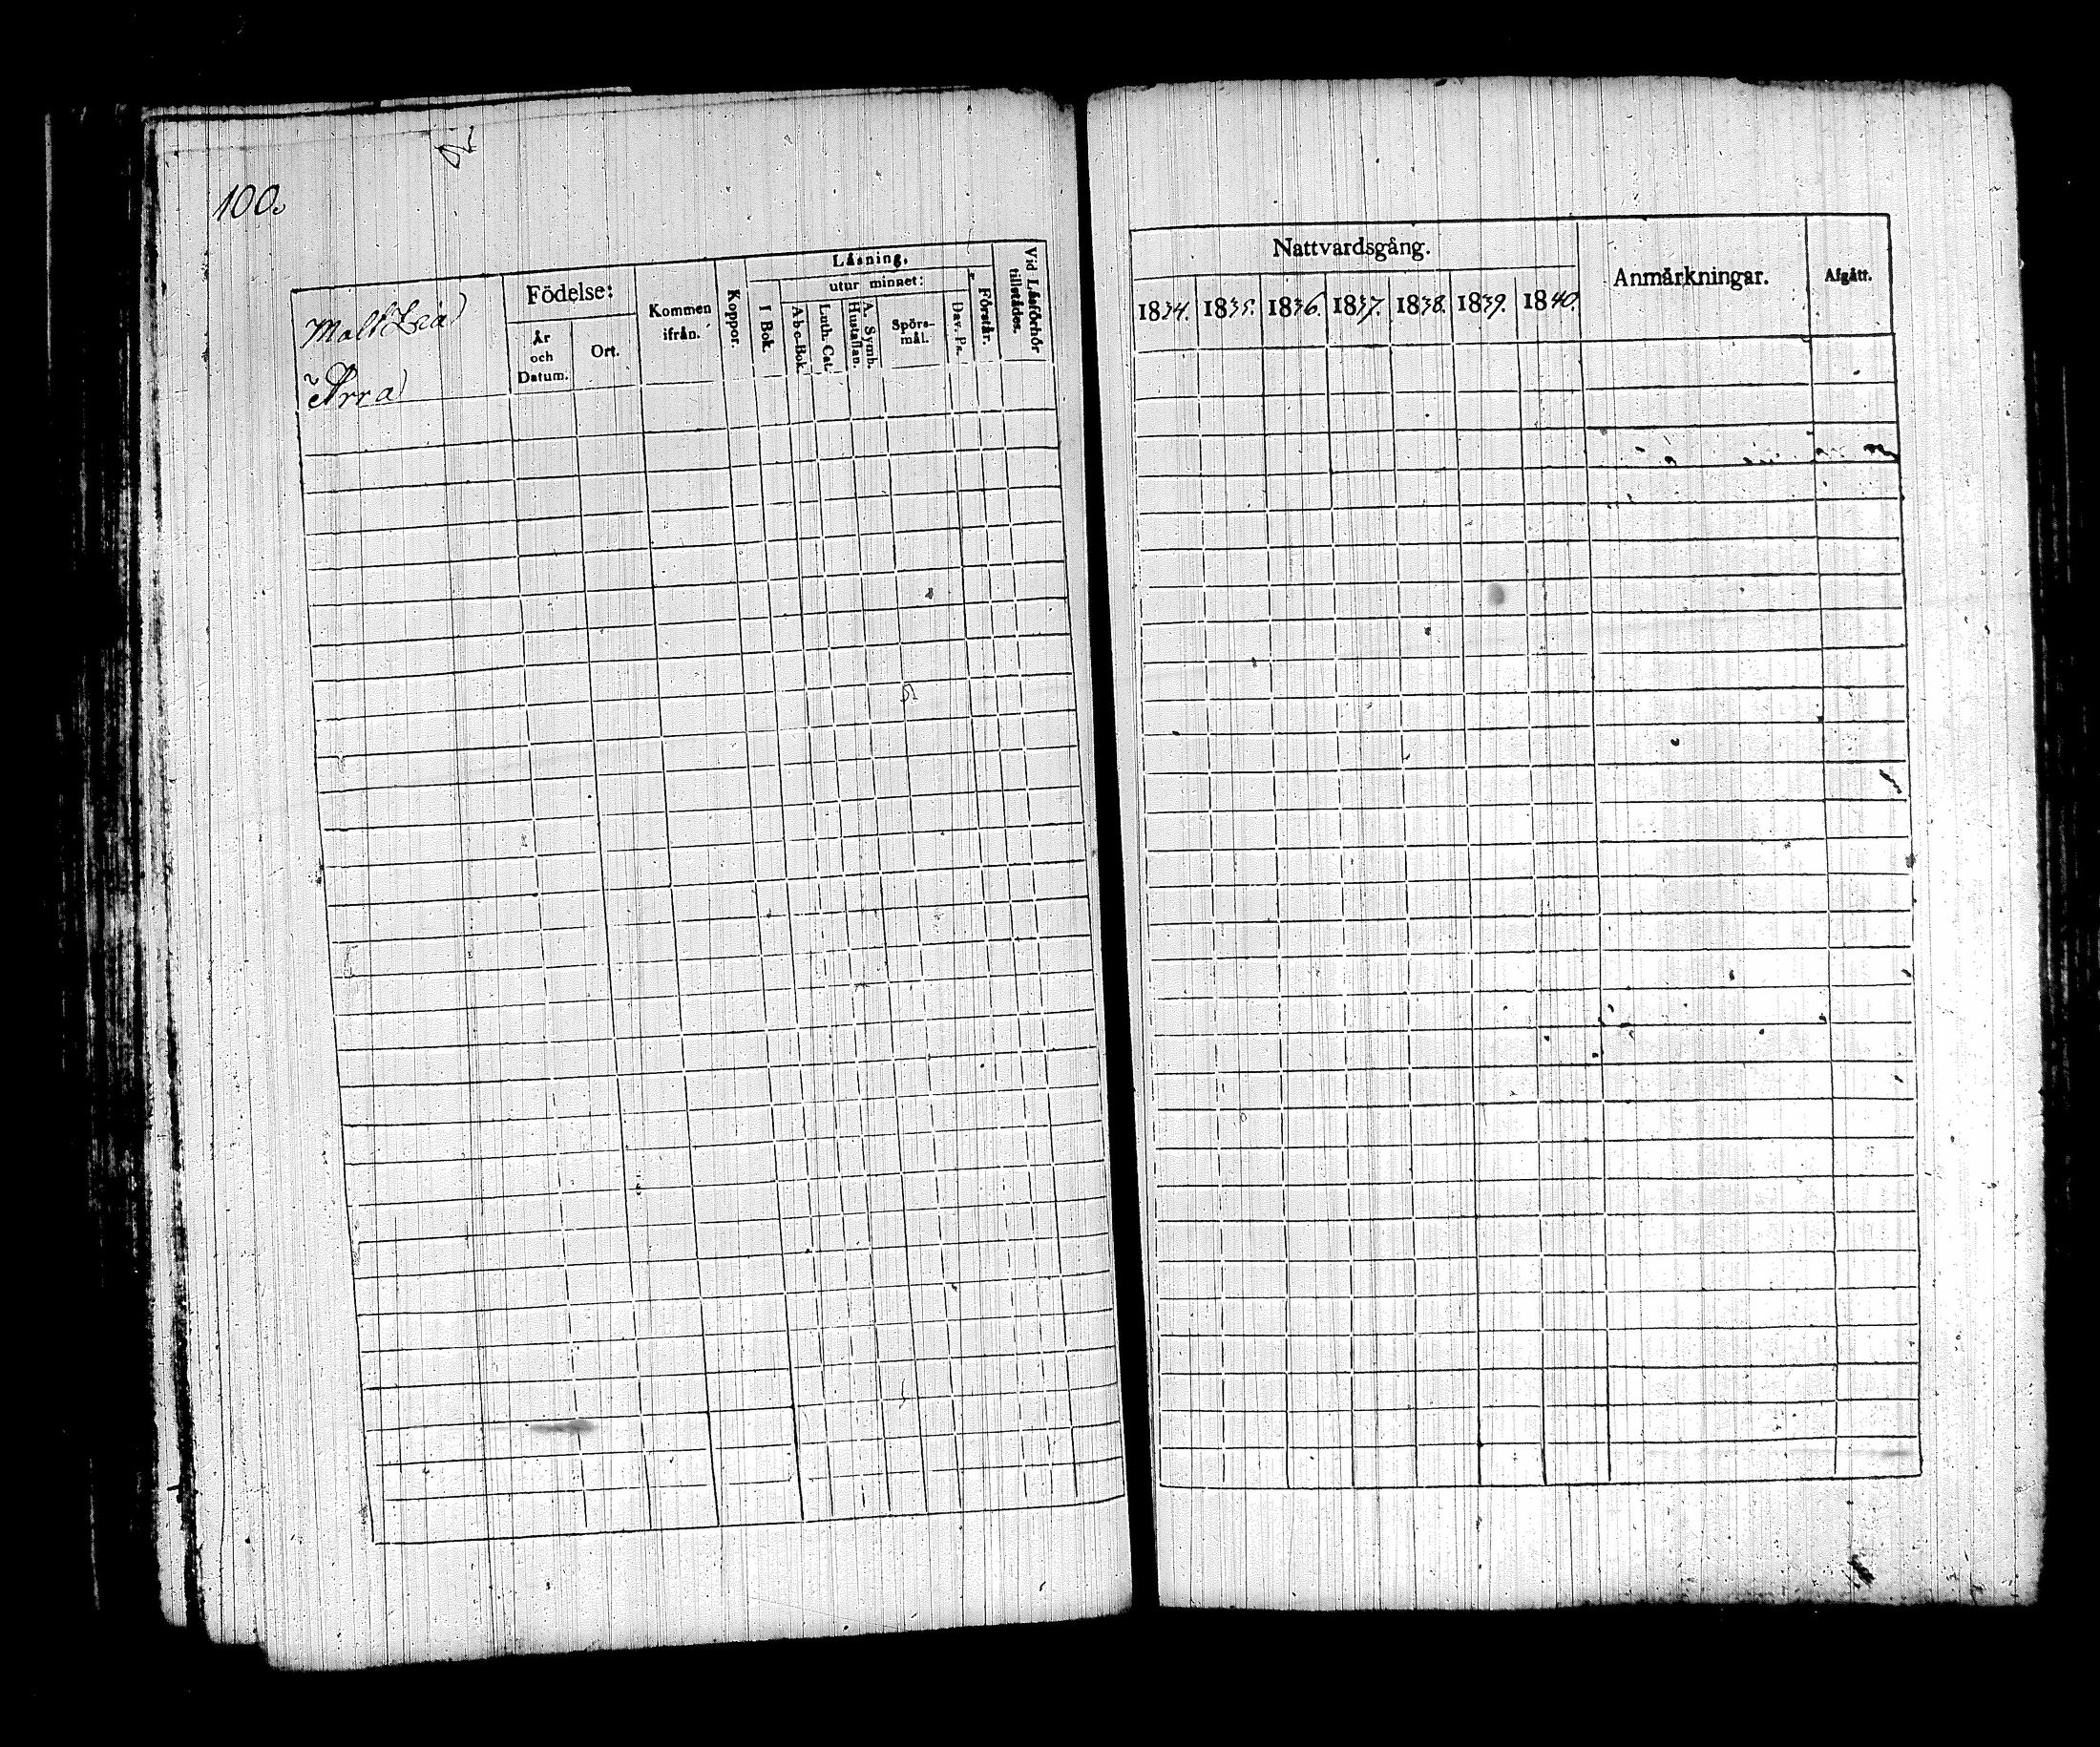 100.
Födelse:
År
och
Datum.
Ort.
Kommen
ifrån.
Koppor.
Läsning,
I Bok.
utur minnet:
Abc-Bok
Luth. Cat.
A. Symb.
Hustaflan.
Spörs-
mål.
Dav. Ps.
Förstår.
Vid Läsförhör
tillstädes.
Nattvardsgång.
1834.
1835.
1836.
1837.
1838.
1839.
1840.
Anmärkningar.
Afgått.